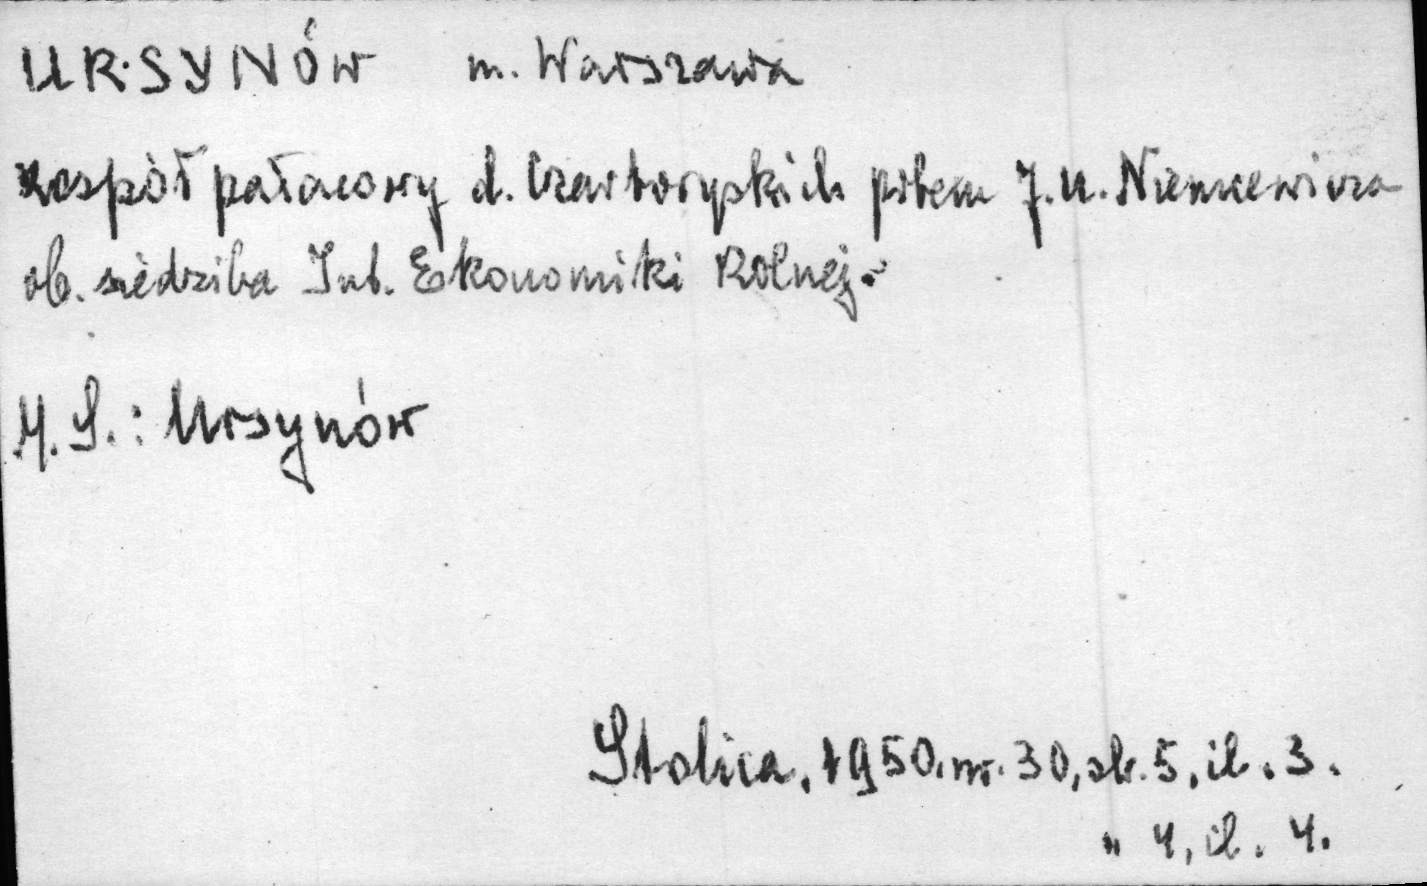 URSYNÓW m. Warszawa
zespół pałacowy d. Czartoryskich potem J.U. Niemcewicza
ob. siedziba Inst. Ekonomiki Rolnej.
M.S.: Ursynów
Stolica, 1950. nr. 30, str. 5, il. 3.
" 4, il. 4.